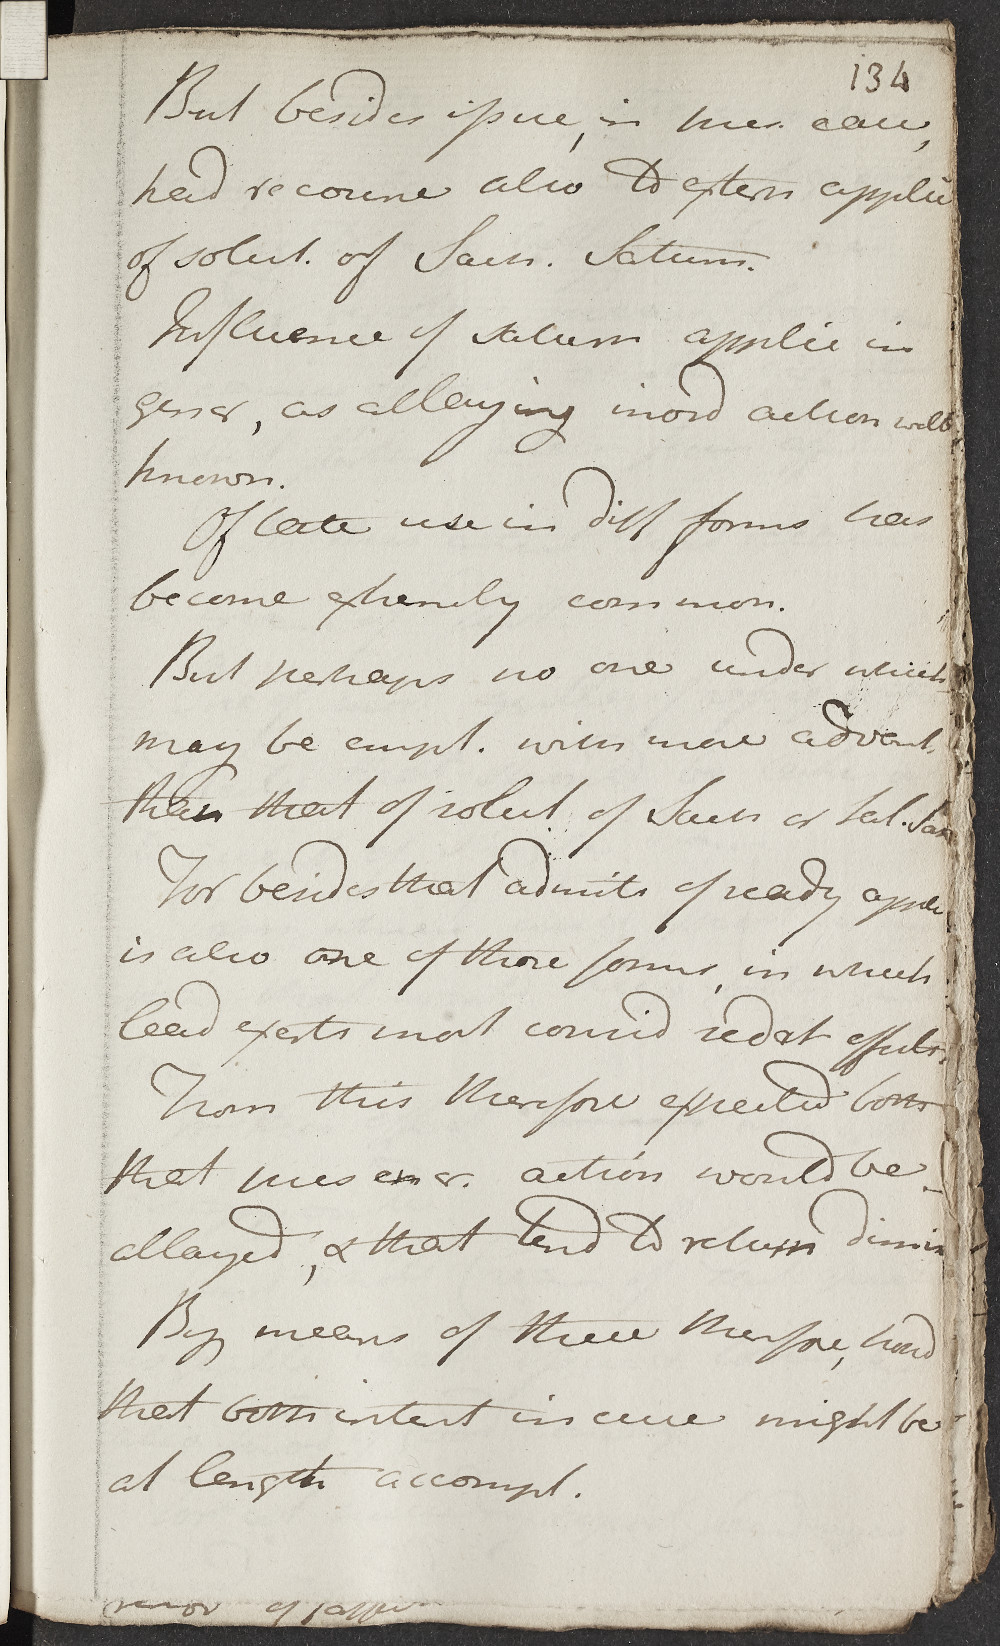 134
But besides issue, in pres. case,
had recourse also to extern applic
of solut. of Sacch. Saturn.
Influence of saturn applic in
gener, as allaying inord action well
known.
Of late use in diff forms has
become extremely common.
But perhaps no one under which
may be empl. with more advant.
than that of solut. of Sacch or Sal. Sat
For besides that admits of ready applic
is also one of those forms, in which
lead exerts most consid sedat effects.
From this therefore expected both
that pres action would be
allayed, & that tend to return dimin
By means of these therefore, hoped
that both intent in cure might be
at length accompl.